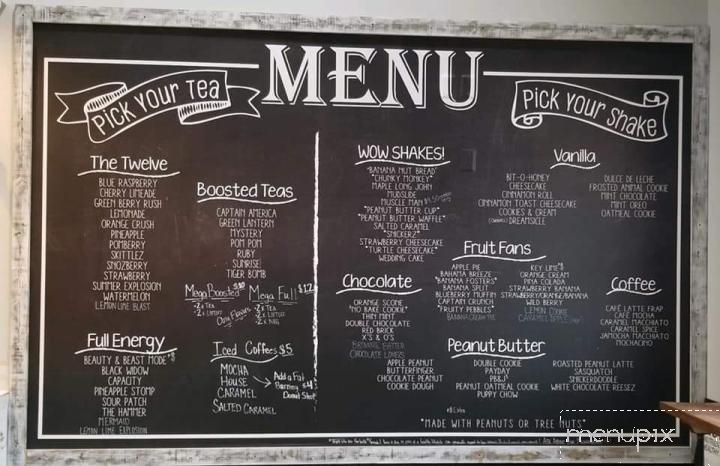 MENU
PICK YOUR TEA
PICK YOUR SHAKE
The Twelve
BLUE RASPBERRY
CHERRY LIMEADE
GREEN BERRY RUSH
LEMONADE
ORANGE CRUSH
PINEAPPLE
POMBERRY
SKITTLEZ
SNOZBERRY
STRAWBERRY
SUMMER EXPLOSION
WATERMELON
LEMON LIME BLAST
Full Energy
BEAUTY & BEAST MODE
BLACK WIDOW
CAPACITY
PINEAPPLE STOMP
SOUR PATCH
THE HAMMER
MERMAID
LEMON LIME EXPLOSION
Boosted Teas
CAPTAIN AMERICA
GREEN LANTERN
MYSTERY
POM POM
RUBY
SUNRISE
TIGER BOMB
Mega Boosted $10
Mega Full $12
Iced Coffees $5
MOCHA
HOUSE
CARAMEL
SALTED CARAMEL
Add a Fat
Burning $4
Donut Shot
WOW SHAKES!
"BANANA NUT BREAD"
"CHUNKY MONKEY"
MAPLE LONG JOHN
MUDSLIDE
MUSCLE MAN
"PEANUT BUTTER CUP"
"PEANUT BUTTER WAFFLE"
SALTED CARAMEL
"SNICKERZ"
STRAWBERRY CHEESECAKE
"TURTLE CHEESECAKE"
WEDDING CAKE
Vanilla
BIT-O-HONEY
CHEESECAKE
CINNAMON ROLL
CINNAMON TOAST CHEESECAKE
COOKIES & CREAM
DREAMSICLE
DULCE DE LECHE
FROSTED ANIMAL COOKIE
MINT CHOCOLATE
MINT OREO
OATMEAL COOKIE
Fruit Fans
APPLE PIE
BAHAMA BREEZE
"BANANA FOSTERS"
BANANA SPLIT
BLUEBERRY MUFFIN
CAPTAIN CRUNCH
"FRUITY PEBBLES"
BANANA CREAM PIE
KEY LIME
ORANGE CREAM
PINA COLADA
STRAWBERRY BANANA
STRAWBERRY/ORANGE/BANANA
WILD BERRY
LEMON COOKIE
CARAMEL APPLE
Chocolate
ORANGE SCONE
"NO BAKE COOKIE"
THIN MINT
DOUBLE CHOCOLATE
RED BRICK
X'S & O'S
BROWNIE BATTER
CHOCOLATE LOVERS
APPLE PEANUT
BUTTERFINGER
CHOCOLATE PEANUT
COOKIE DOUGH
Coffee
CAFÉ LATTE FRAP
CAFÉ MOCHA
CARAMEL MACCHIATO
CARAMEL SPICE
JAMOCHA MACCHIATO
MOCHACINO
Peanut Butter
DOUBLE COOKIE
PAYDAY
PB&J
PEANUT OATMEAL COOKIE
PUPPY CHOW
ROASTED PEANUT LATTE
SASQUATCH
SNICKERDOODLE
WHITE CHOCOLATE REESEZ
"MADE WITH PEANUTS OR TREE NUTS"
menupix